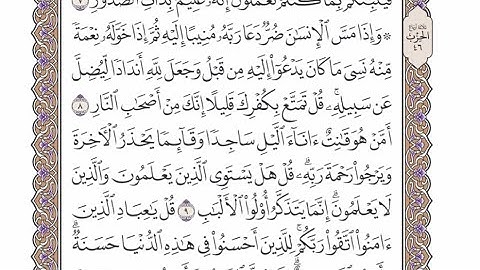 فَيُنَبِّئُكُم بِمَا كُنتُمْ تَعْمَلُونَ إِنَّهُۥ عَلِيمٌۢ بِذَاتِ ٱلصُّدُورِ ٧
۞ وَإِذَا مَسَّ ٱلْإِنسَٰنَ ضُرٌّ دَعَا رَبَّهُۥ مُنِيبًا إِلَيْهِ ثُمَّ إِذَا خَوَّلَهُۥ نِعْمَةً
مِّنْهُ نَسِىَ مَا كَانَ يَدْعُوٓا۟ إِلَيْهِ مِن قَبْلُ وَجَعَلَ لِلَّهِ أَندَادًا لِّيُضِلَّ
عَن سَبِيلِهِۦ ۚ قُلْ تَمَتَّعْ بِكُفْرِكَ قَلِيلًا ۖ إِنَّكَ مِنْ أَصْحَٰبِ ٱلنَّارِ ٨
أَمَّنْ هُوَ قَٰنِتٌ ءَانَآءَ ٱلَّيْلِ سَاجِدًا وَقَآئِمًا يَحْذَرُ ٱلْءَاخِرَةَ
وَيَرْجُوا۟ رَحْمَةَ رَبِّهِۦ ۗ قُلْ هَلْ يَسْتَوِى ٱلَّذِينَ يَعْلَمُونَ وَٱلَّذِينَ
لَا يَعْلَمُونَ ۗ إِنَّمَا يَتَذَكَّرُ أُو۟لُوا۟ ٱلْأَلْبَٰبِ ٩ قُلْ يَٰعِبَادِ ٱلَّذِينَ
ءَامَنُوا۟ ٱتَّقُوا۟ رَبَّكُمْ ۚ لِلَّذِينَ أَحْسَنُوا۟ فِى هَٰذِهِ ٱلدُّنْيَا حَسَنَةٌ ۗ
ثلاثة أرباع
الحزب
٤٦